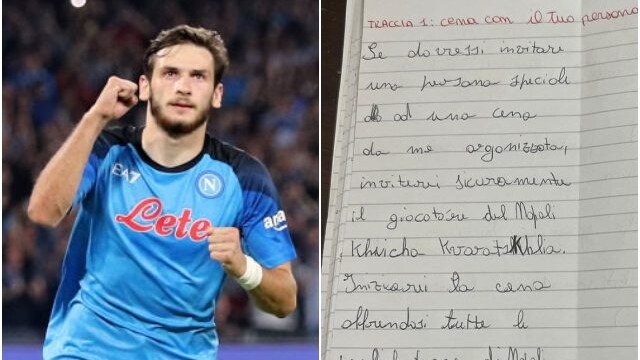 EA7
N
Lete
ama
TRACCIA 1: cena con il tuo persona
Se dovessi invitare
una persona speciale
ad una cena
da me organizzata,
inviterei sicuramente
il giocatore del Napoli
Khvicha KvaratsKhlia.
Inizierei la cena
tutte le